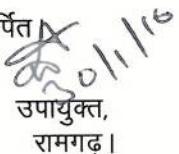 र्पित
30/1/16
उपायुक्त,
रामगढ़।